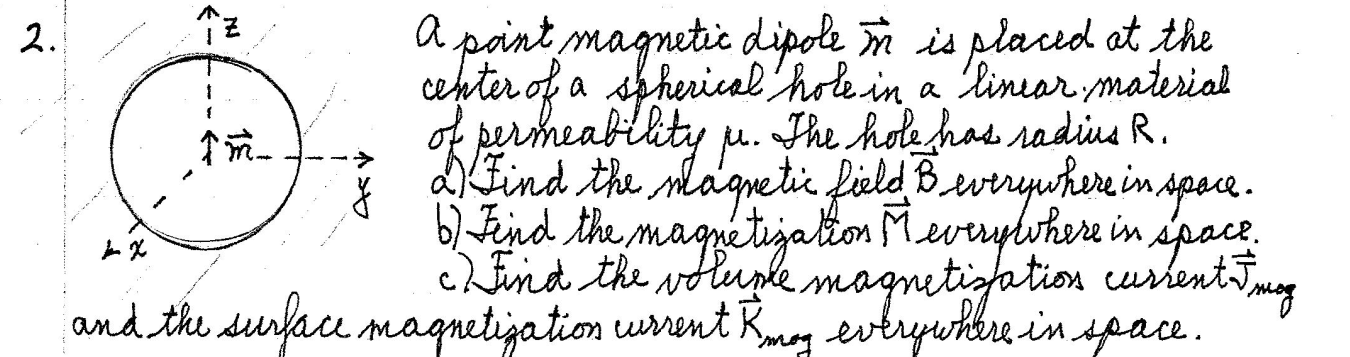 2.
z
m⃗
y
x
A point magnetic dipole m⃗ is placed at the
center of a spherical hole in a linear material
of permeability μ. The hole has radius R.
a) Find the magnetic field B⃗ everywhere in space.
b) Find the magnetization M⃗ everywhere in space.
c) Find the volume magnetization current J⃗mag
and the surface magnetization current K⃗mag everywhere in space.